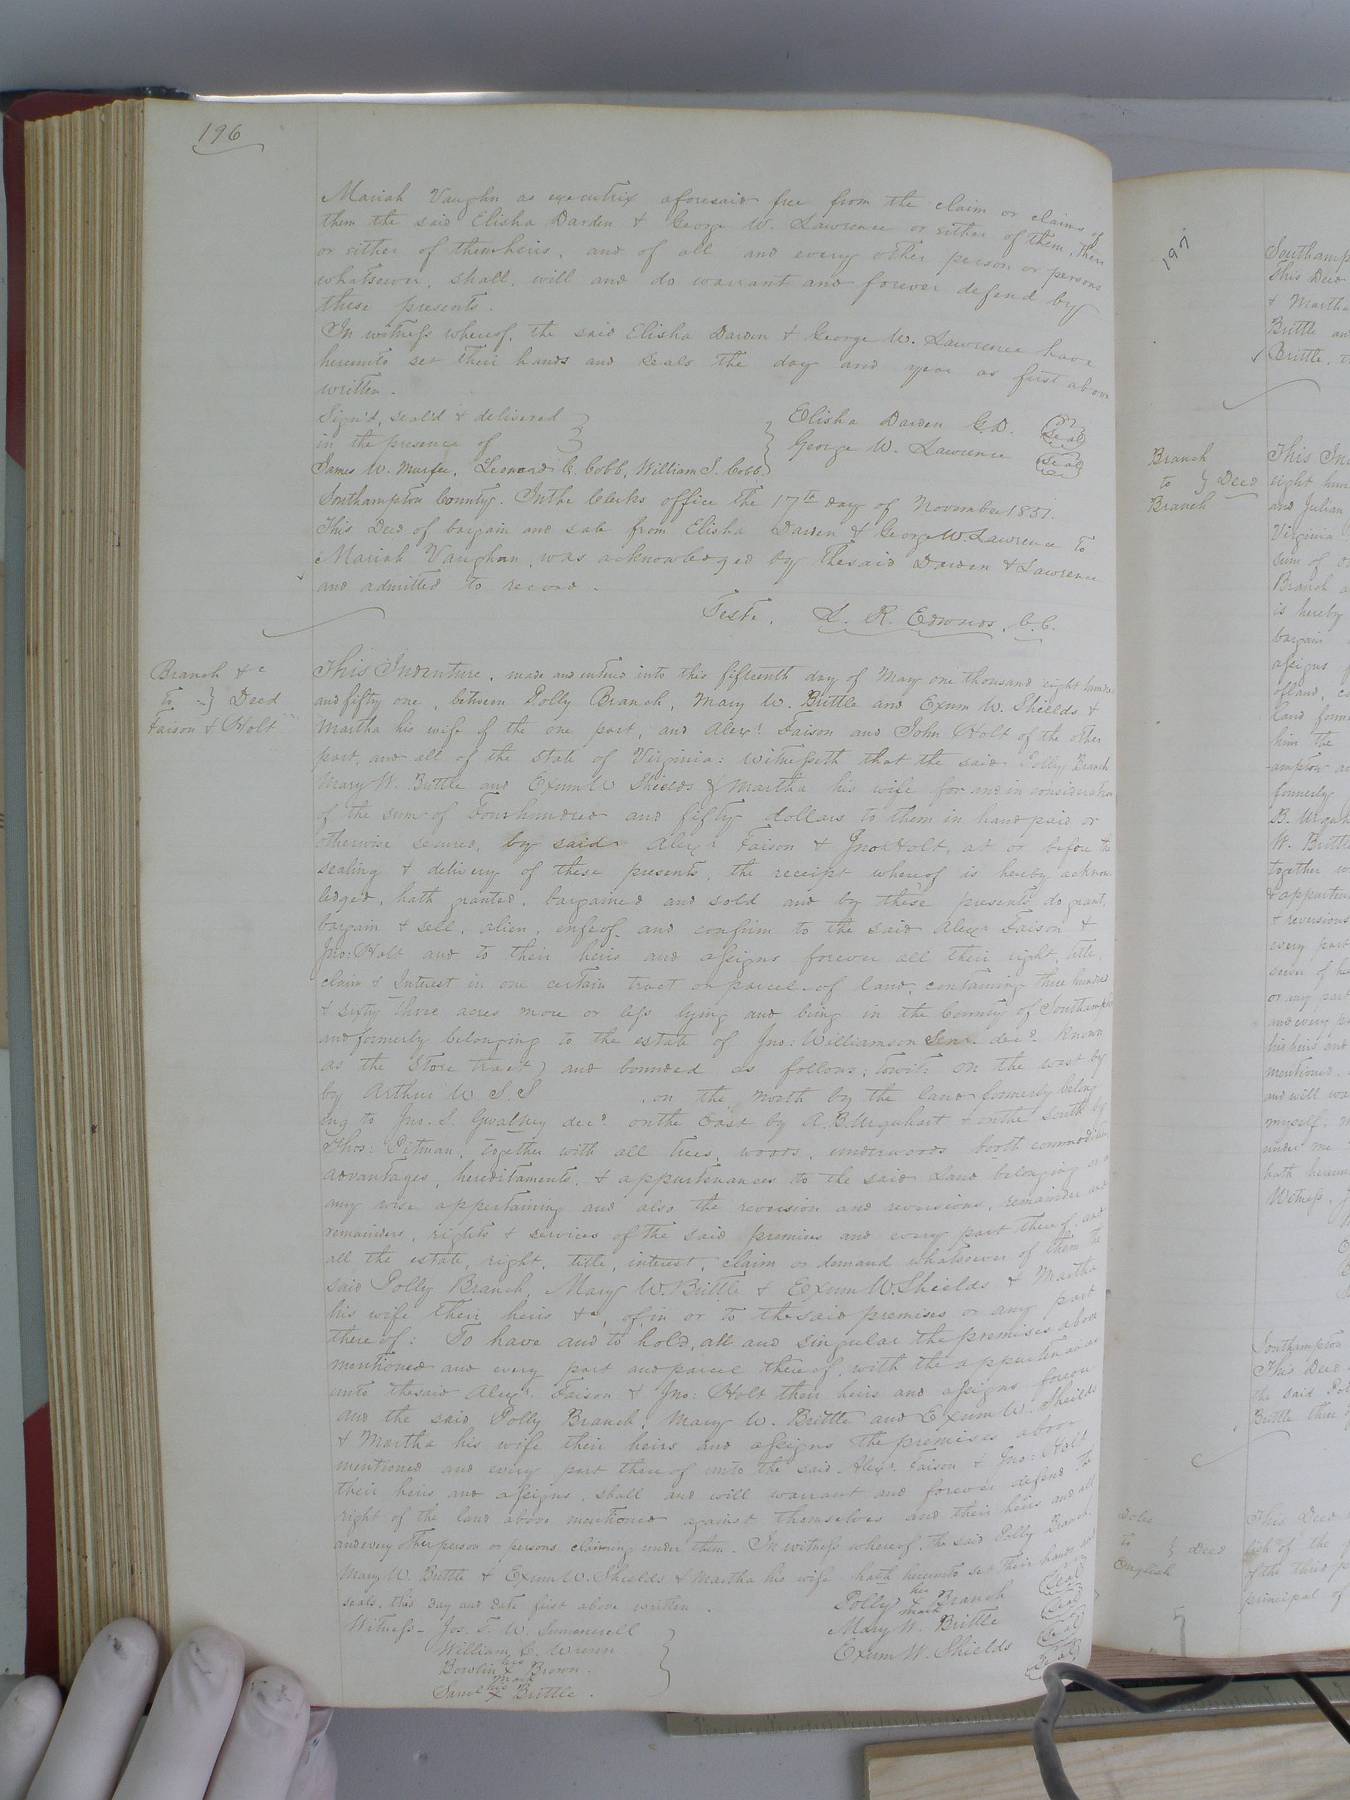 196
Mariah Vaughn as executrix aforesaid free from the claim or claims of
them the said Elisha Darden & George W. Lawrence or either of them, their
or either of theirheirs, and of all and every other person or persons
whatsoever, shall, will and do warrant and forever defend by
these presents.
In witness whereof, the said Elisha Darden & George W. Lawrence have
hereunto set their hands and seals the day and year as first above
written.
Sign'd, seal'd & delivered
in the presence of
James W. Murfee, Leonard C. Cobb, William J. Cobb.
Elisha Darden E.D. (Seal)
George W. Lawrence (Seal)
Southampton County. Inthe Clerks office the 17th day of November 1851.
This Deed of bargain and sale from Elisha Darden & George W. Lawrence to
Mariah Vaughan, was acknowledged by thesaid Darden & Lawrence
and admitted to record.
Teste. L. R. Edwards, C.C.
Branch &c
to } Deed
Faison & Holt
This Indenture, made and entered into this fifteenth day of May one thousand eight hundred
and fifty one, between Polly Branch, Mary W. Brittle and Exum W. Shields &
Martha his wife of the one part, and Alexr. Faison and John Holt of the other
part, and all of the State of Virginia: witnesseth that the said Polly Branch
Mary W. Brittle and Exum W Shields & Martha his wife for and in consideration
of the sum of Fourhundred and fifty dollars to them in hand paid or
otherwise secured, by said Alexr Faison & Jno Holt, at or before the
sealing & delivery of these presents, the receipt whereof is hereby acknow
ledged, hath granted, bargained and sold and by these presents do grant,
bargain & sell, alien, enfeof and confirm to the said Alexr Faison &
Jno: Holt and to their heirs and assigns forever all their right, title,
claim & Interest in one certain tract or parcel of land, containing three hundred
& sixty three acres more or less lying and being in the County of Southampton
and formerly belonging to the estate of Jno: Williamson Senr. decd. known
as the Store tract) and bounded as follows; towit: on the west by
by Arthur W S.S , on the north by the land formerly belong
ing to Jno. S. Gwaltney decd. onthe East by A.B. Urquhart & onthe South by
Thos: Pitman, together with all trees, woods, underwoods booth commodities
advantages, hereditaments, & appurtenances to the said Land belonging or in
any wise appertaining and also the reversion and reversions, remainder and
remainders, rights & services of the said premises and every part thereof, and
all the estate, right, title, interest, claim or demand whatsoever of them the
said Polly Branch, Mary W. Brittle & Exum W. Shields & Martha
his wife their heirs &c, of, in or to thesaid premises or any part
thereof: To have and to hold, all and singular the premises above
mentioned and every part and parcel thereof, with the appurtenances
unto thesaid Alexr. Faison & Jno: Holt their heirs and assigns forever
and the said Polly Branch, Mary W. Brittle and Exum W. Shields
& Martha his wife their heirs and assigns the premises above
mentioned and every part thereof unto the said Alexr. Faison & Jno: Holt
their heirs and assigns, shall and will warrant and forever defend to
right of the land above mentioned against themselves and their heirs and all
and every other person or persons claiming under them. In witness whereof, the said Polly Branch,
Mary W. Brittle & Exum W. Shields & Martha his wife hath hereunto set their hands and
seals, this day and date first above written.
Witness – Jos. T. W. Summerell
William E. Wrenn
Bowlin his x mark Brown.
Saml his x Brittle.
Polly her + mark Branch (Seal)
Mary W. Brittle (Seal)
Exum W. Shields (Seal)
(Seal)
197
Southamp
This Deed
& Martha
Brittle and
Brittle, t
Branch
to } Deed
Branch
This In
eight hun
and Julian
Virginia
sum of
Branch a
is hereby
bargain
assigns
ofland, c
land form
him the
ampton
formerly
B. Urquh
W. Brittle
together w
& appurten
& reversions
every part
or any part
and every p
his heirs and
mentioned
and will wa
myself, m
under me
hath hereun
Witness, J
Southampton
This Deed
the said Pol
Brittle thereof
to } Deed
English
This Deed
lish of the
of the third p
principal of